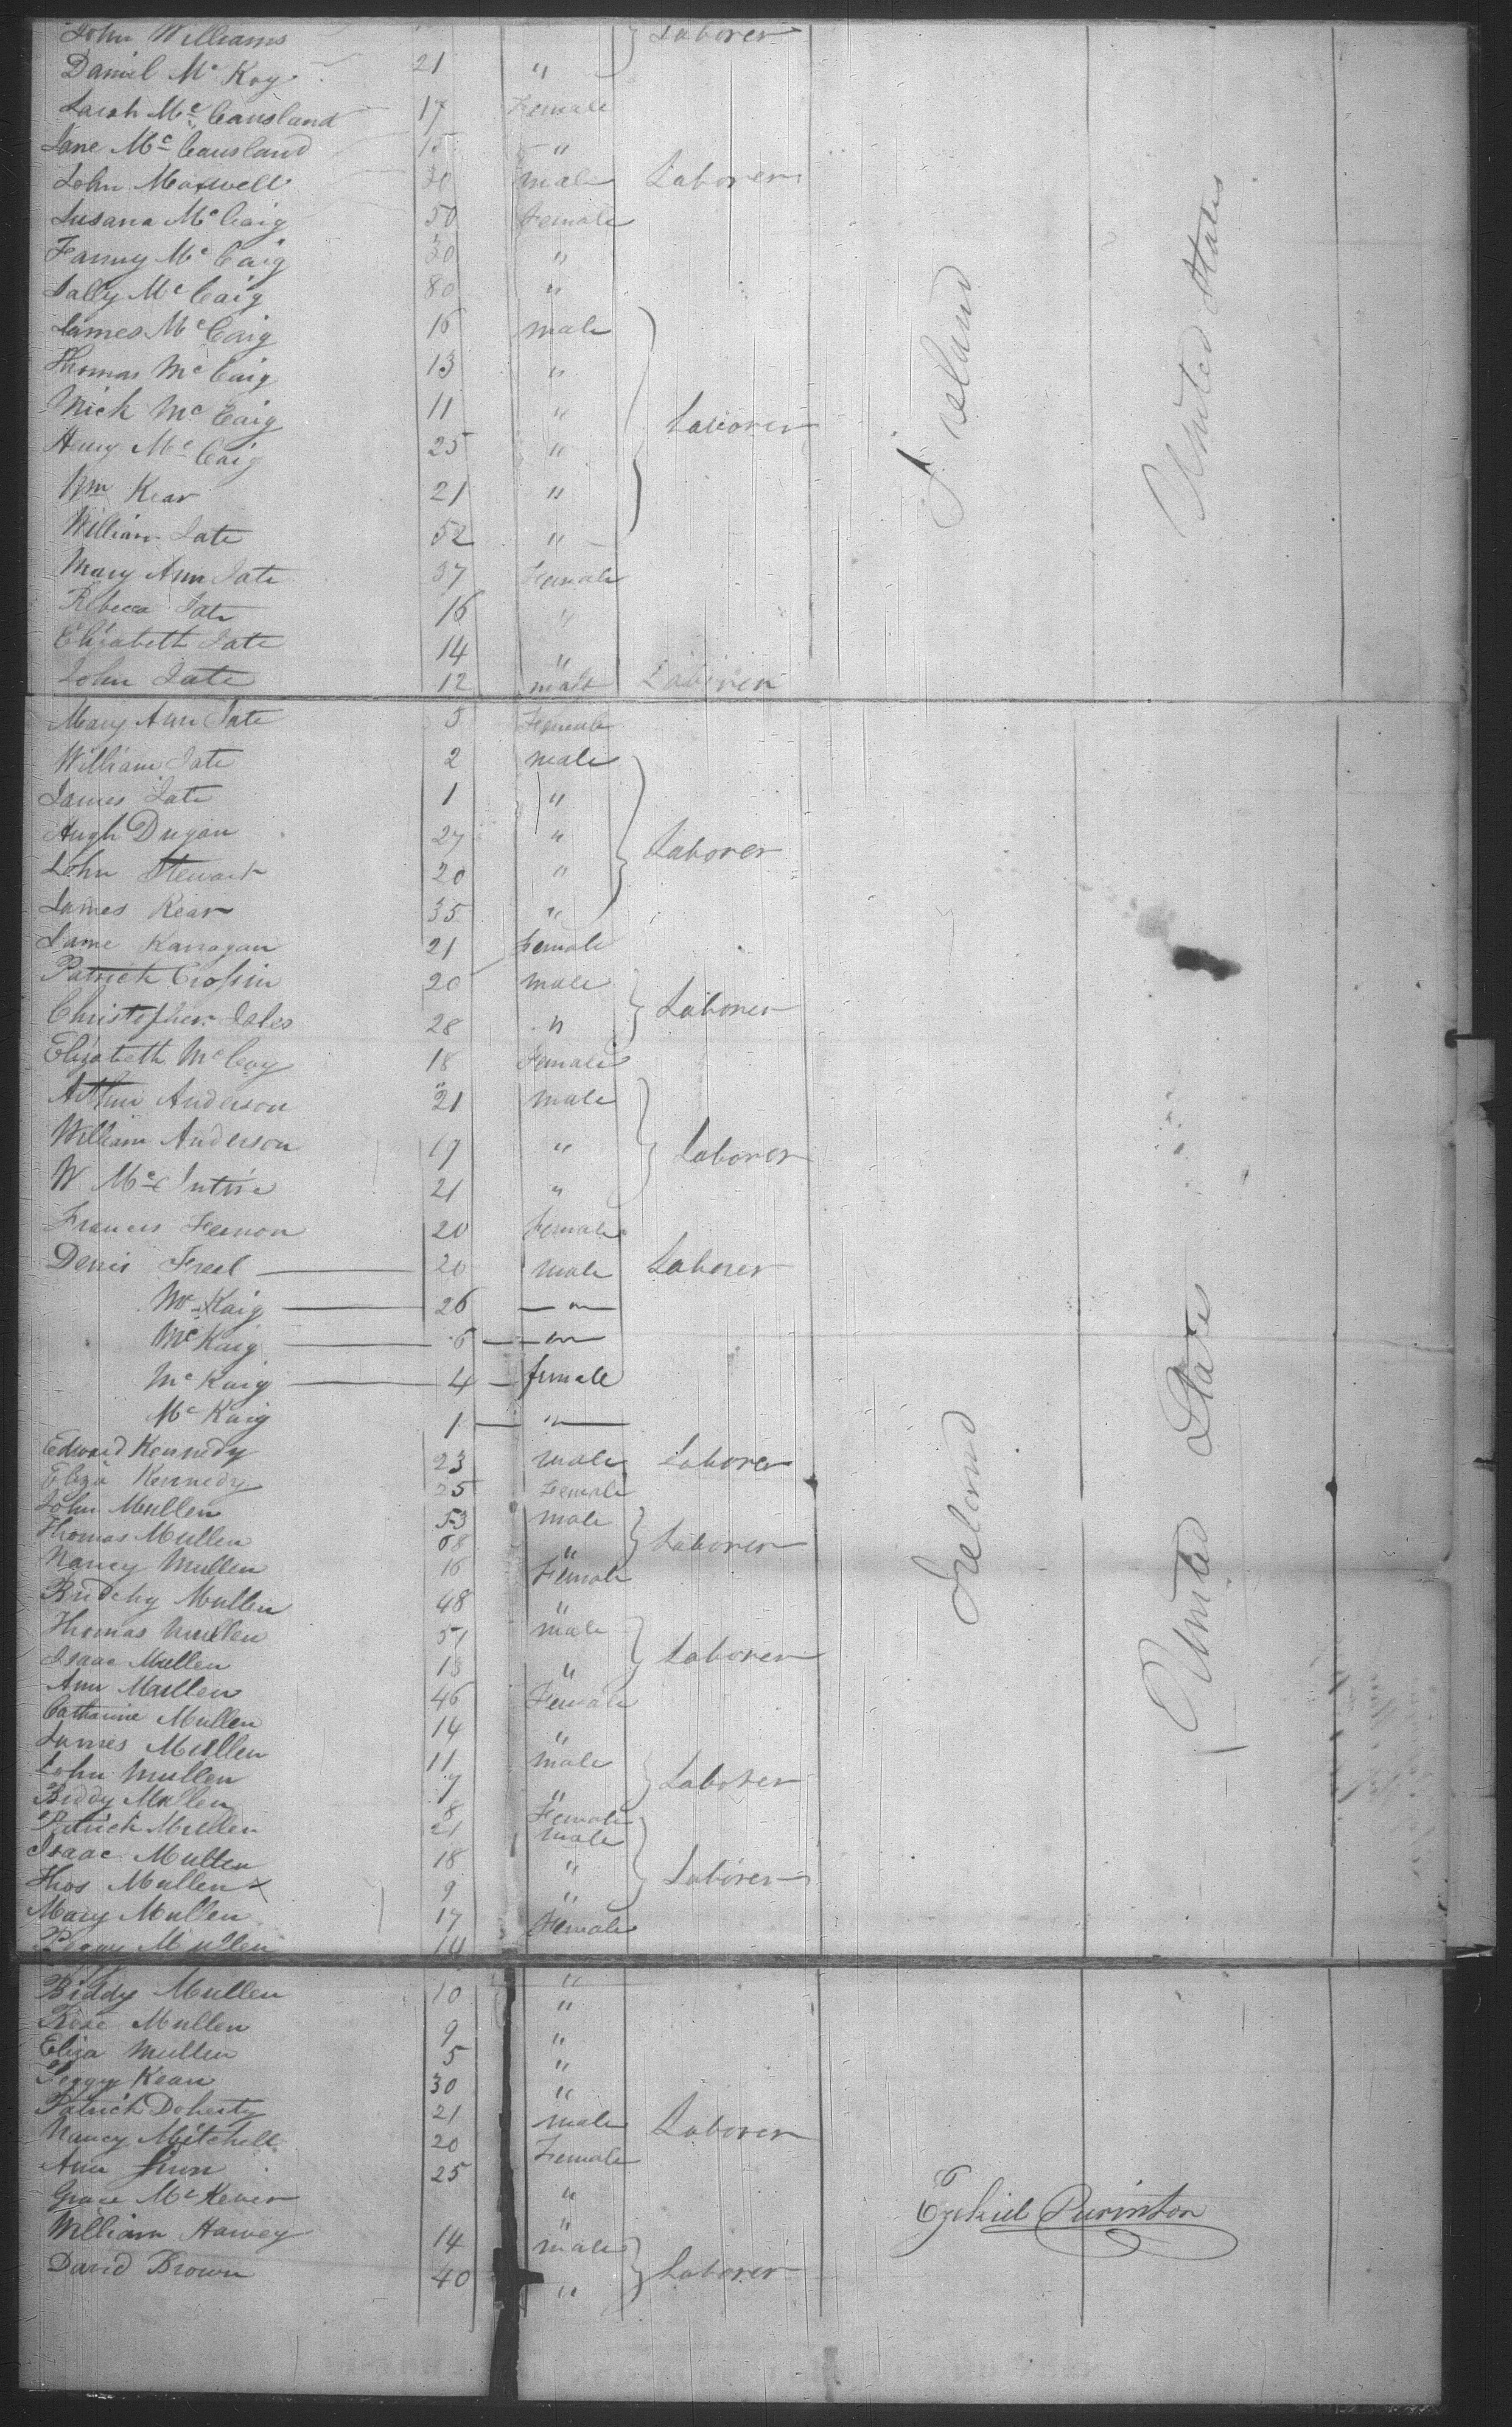 John Williams " } Laborer
Daniel McKoy 21 "
Sarah McCausland 17 Female
Jane McCausland 15 "
John Maxwell 20 male Laborer
Susana McCaig 50 Female
Fanny McCaig 30 "
Sally McCaig 80 "
James McCaig 16 male
Thomas McCaig 13 "
Mick McCaig 11 " } Laborer
Henry McCaig 25 "
Wm Kear 21 "
William Tate 52 "
Mary Ann Tate 37 Female
Rebecca Tate 16 "
Elizabeth Tate 14 "
John Tate 12 male Laborer
Ireland United States
Mary Ann Tate 5 Female
William Tate 2 male
James Tate 1 "
Hugh Dugan 27 " } Laborer
John Stewart 20 "
James Kear 35 "
Jane Kanagan 21 Female
Patrick Crossin 20 male } Laborer
Christopher Isles 28 "
Elizabeth McCoy 18 Female
Arthur Anderson 21 male
William Anderson 17 " } Laborer
W McIntire 21 "
Francis Fernon 20 Female
Denis Freel 20 male Laborer
McKaig 26 "
McKaig 6 "
McKaig 4 female
McKaig 1 "
Edward Kennedy 23 male Laborer
Eliza Kennedy 25 Female
John Mullen 53 male } Laborer
Thomas Mullen 68 "
Nancy Mullen 16 Female
Bridehy Mullen 48 "
Thomas Mullen 51 male } Laborer
Isaac Mullen 13 "
Ann Mullen 46 Female
Catharine Mullen 14 "
James Mullen 11 male } Laborer
John Mullen 7 "
Biddy Mullen 8 Female
Patrick Mullen 21 male
Isaac Mullen 18 " } Laborer
Thos Mullen x 9 "
Mary Mullen 17 Female
Peggy Mullen 14
Ireland United States
Biddy Mullen 10 "
Rose Mullen 9 "
Eliza Mullen 5 "
Peggy Kean 30 "
Patrick Doherty 21 male Laborer
Nancy Mitchell 20 Female
Ann 25 "
Grace McKever "
William Harvey 14 male } Laborer
David Brown 40 "
Ezekiel Purinton